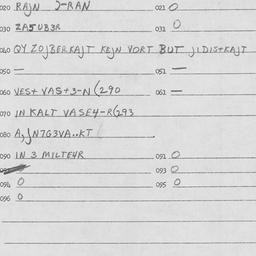 020 RAJN J-RAN 021 0
030 ZA5UB3R 031 0
040 QY ZOJBERKAJT KEJN VORT BUT JLDIS+KAJT
050 — 051 —
060 VES+ VAS+3-N (290 061 —
070 IN KALT VASE4-R(293
080 A,JN7G3VA..KT (
090 IN 3 MILTE4R 091 0
093 0
094 0 095 0
096 0